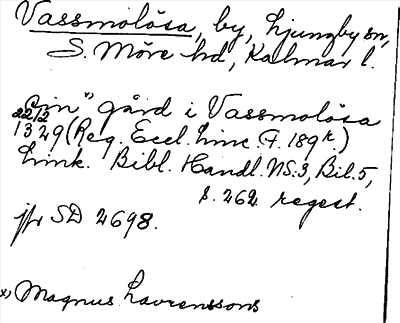 Vassmolösa, by, Ljungby sn,
S. Möre hd, Kalmar l.
"sin" gård i Vassmolösa
22/2
1329 (Reg. Eccl. Linc. f. 189 r.)
Link. Bibl. Handl. NS:3, Bil. 5,
s. 262 regest.
jfr SD 2698.
x) Magnus Lavrenssons